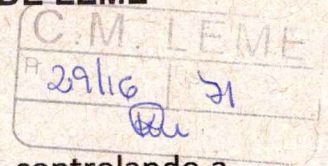 DE LEME
C. M. LEME
P 29/16 71
controlando a